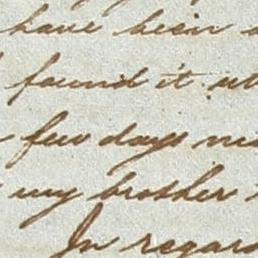 have been
found it
few days
my brother
In regard